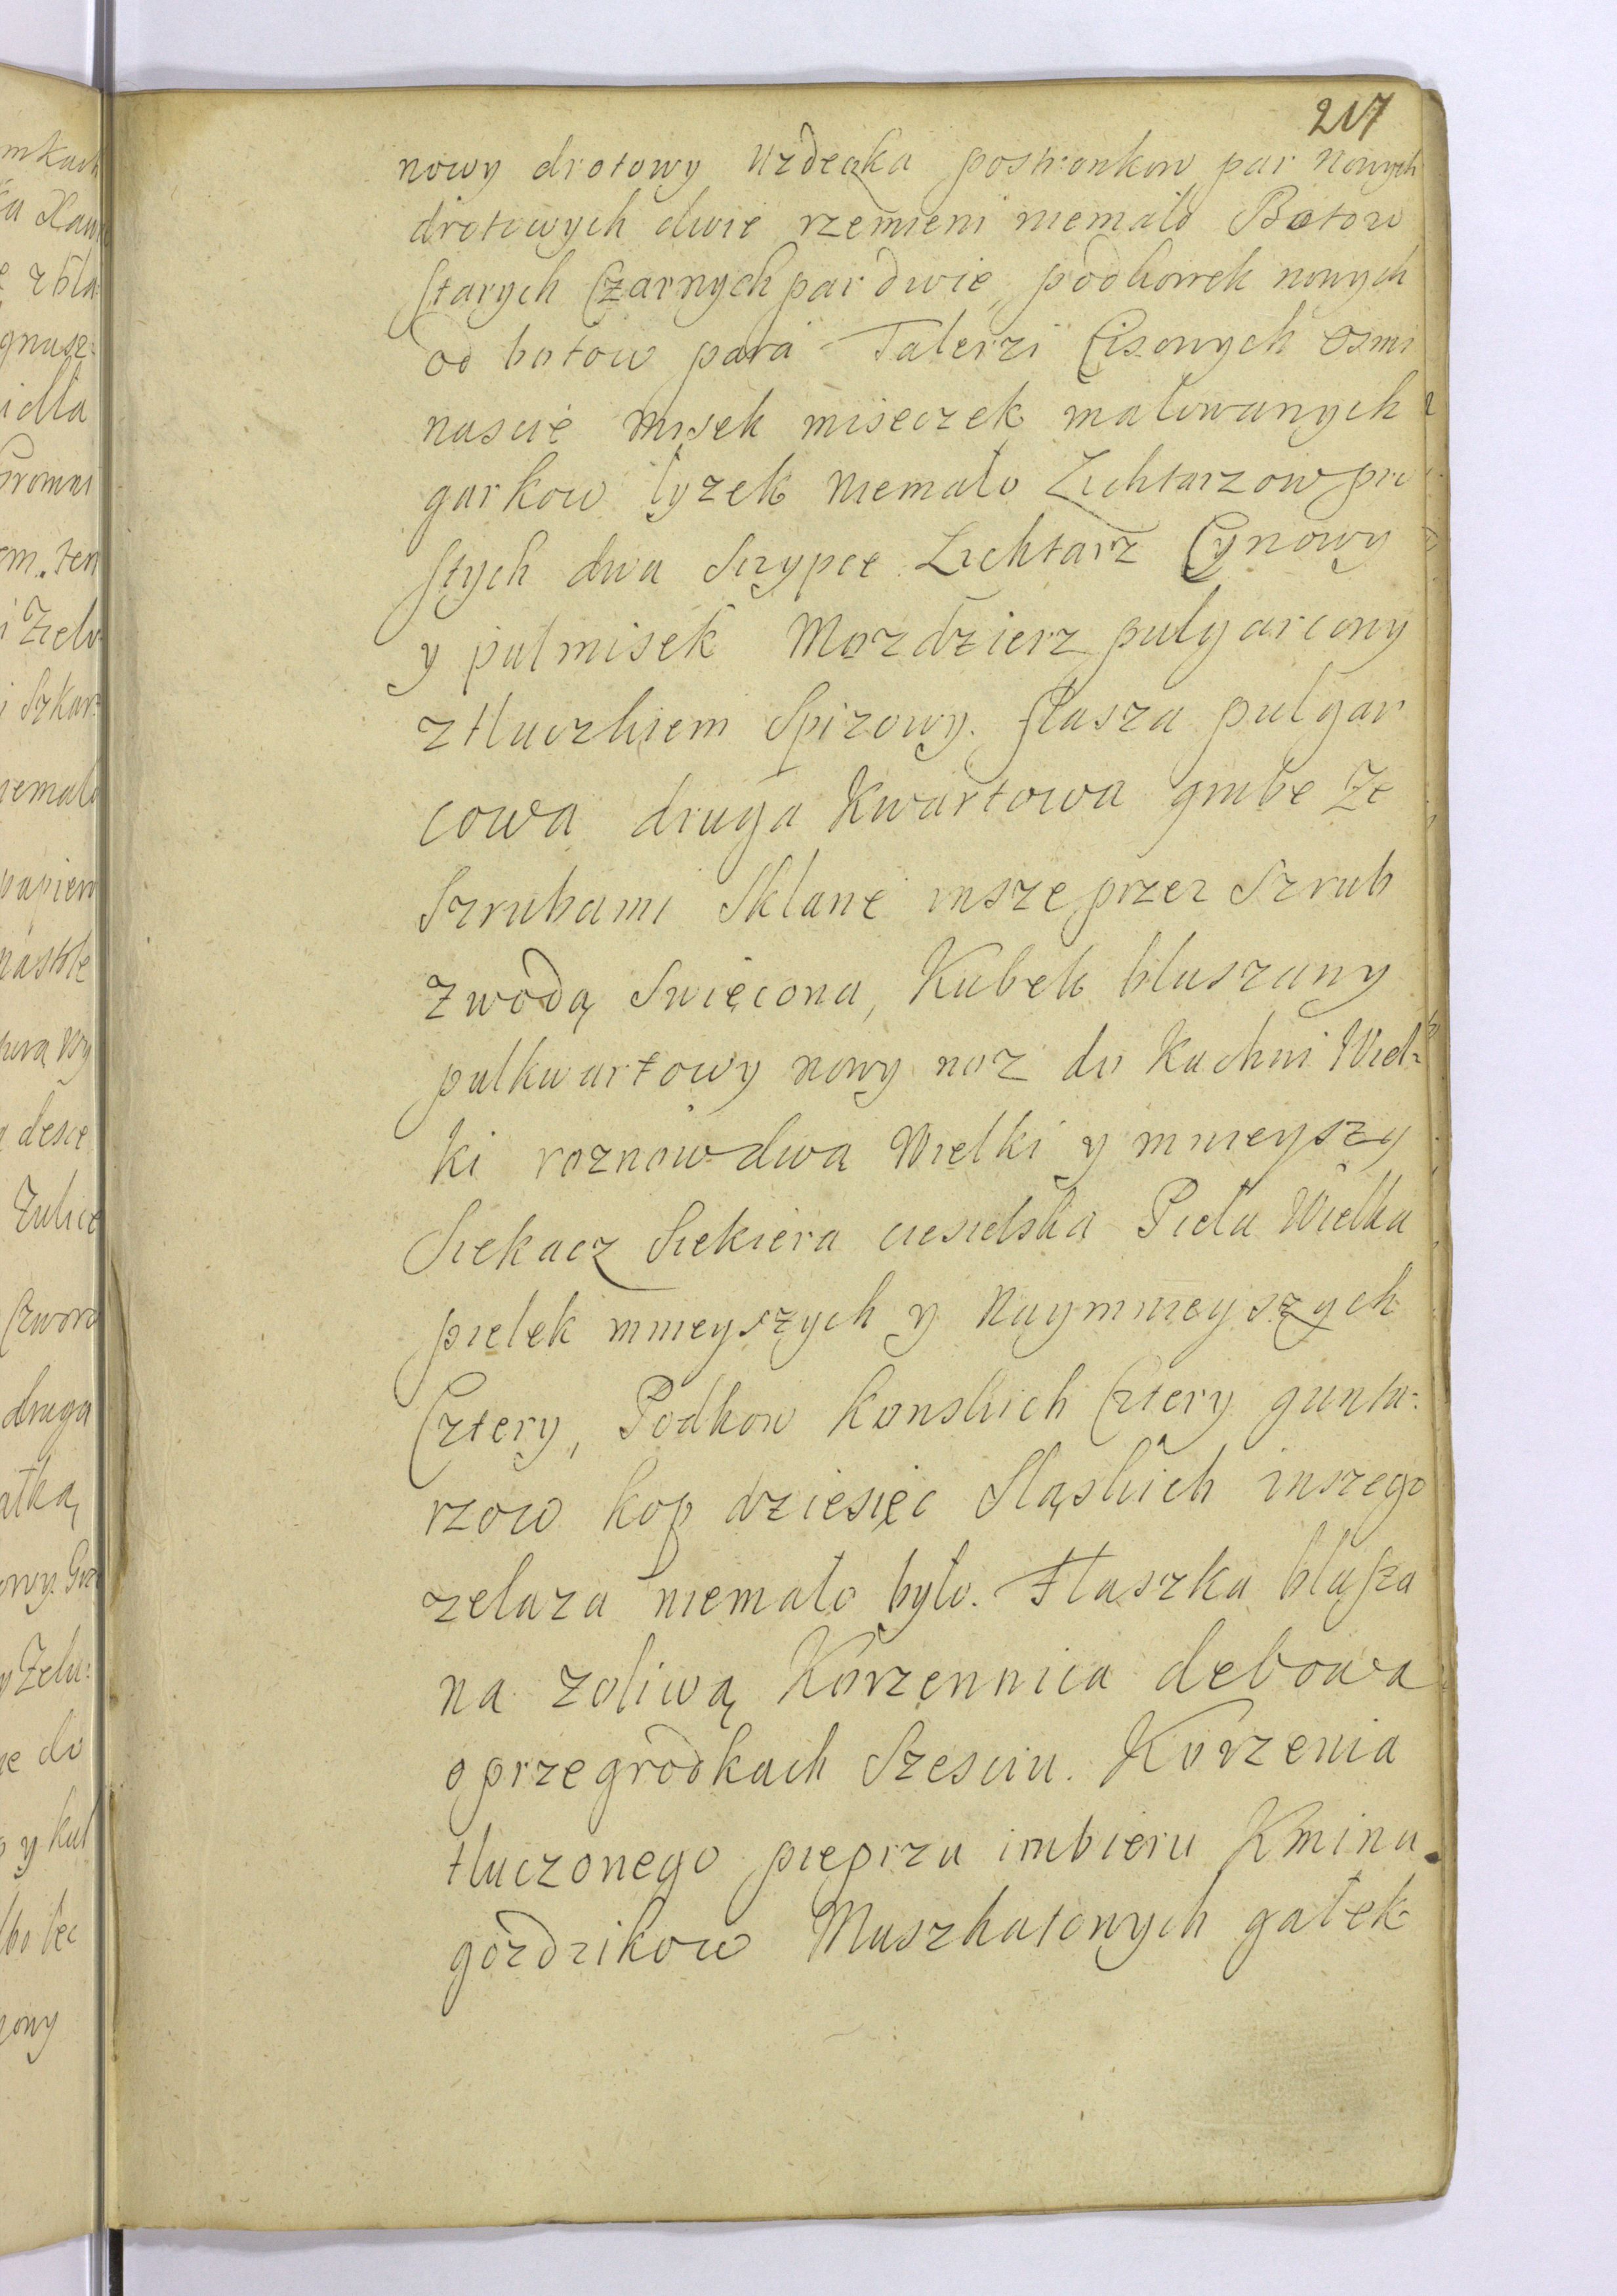 217
nowy drotowy uzdeczka postronkow par nowych
drotowych dwie rzemieni niemało Botow
starych Czarnych par dwie, podkowek nowych
od botow para Talerzi Cisowych osmi
nascie misek miseczek malowanych
garkow łyzek niemało Lichtarzow pro
stych dwa Szypce Lichtarz Cynowy
y pulmisek Mozdzierz pulgarcowy
z tluczkiem Spizowy. flasza pulgar
cowa druga Kwartowa grube Ze
Szrubami Sklane insze przez Szrub
z wodą Swięcona, Kubek blaszany
pulkwartowy nowy noz do Kuchni Wiel-
ki roznow dwa Wielki y mnieyszy
Siekacz Siekiera ciesielska Piela Wielka
pielek mnieyszych y naymnieyszych
Cztery, Podkow konskich Cztery gunta-
rzow kop dziesięc Sląskich inszego
zelaza niemało było. Flaszka blasza
na z oliwą Korzennica debowa
o przegrodkach Szesciu. Korzenia
tluczonego pieprzu imbieru Kminu
gozdzikow Muszkatowych gałek